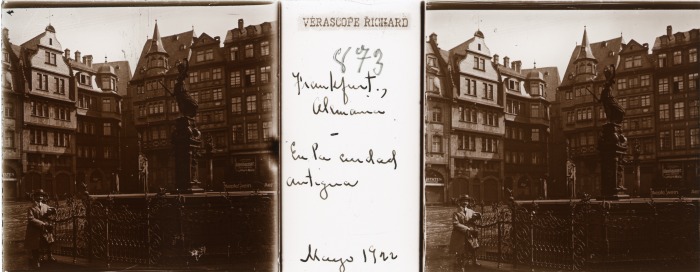 VÉRASCOPE RICHARD
873
Frankfurt,
Almania
—
En la ciudad
antigua
Mayo 1922